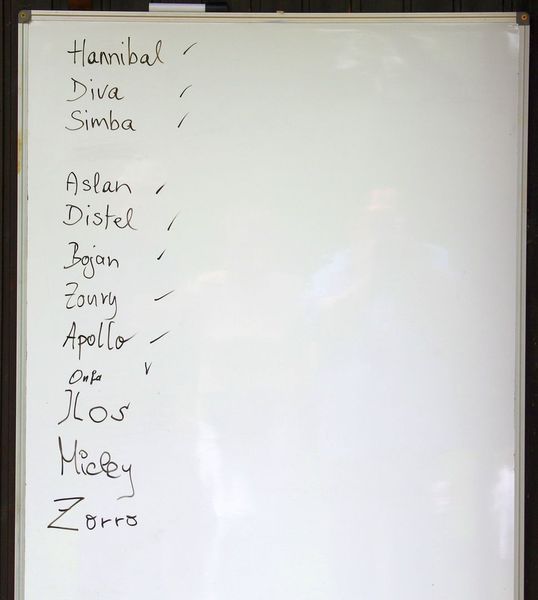 Hannibal ✓
Diva ✓
Simba ✓
Aslan ✓
Distel ✓
Bojan ✓
Zoury ✓
Apollo ✓
Ilos
Mickey
Zorro